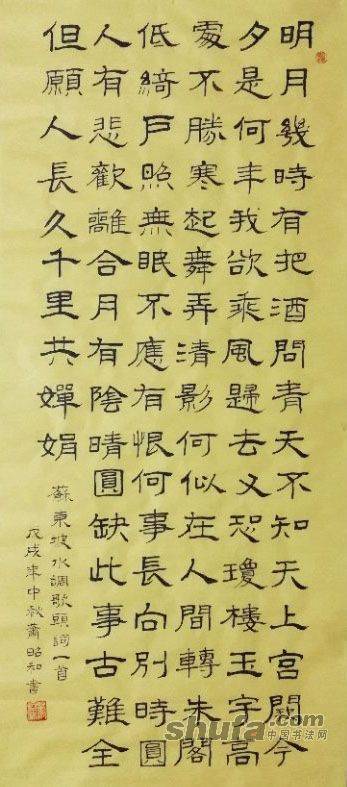 明月幾時有把酒問青天不知天上宮闕今
夕是何年我欲乘風歸去又恐瓊樓玉宇高
處不勝寒起舞弄清影何似在人間轉朱閣
低綺戶照無眠不應有恨何事長向別時圓
人有悲歡離合月有陰晴圓缺此事古難全
但願人長久千里共嬋娟
蘇東坡水調歌頭詞一首
戊戌年中秋蕭昭知書
shufa.com
中国书法网